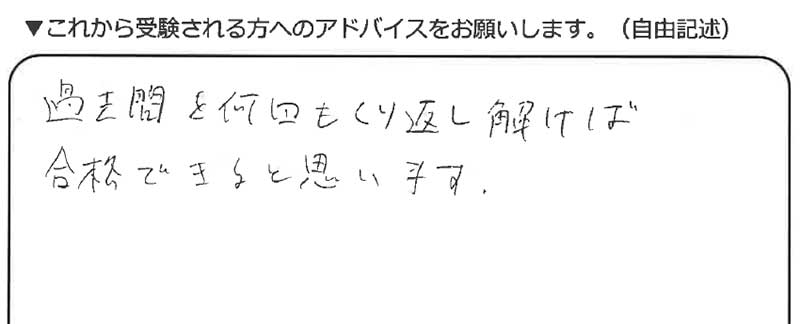 ▼これから受験される方へのアドバイスをお願いします。（自由記述）
過去問を何回もくり返し解けば
合格できると思います.